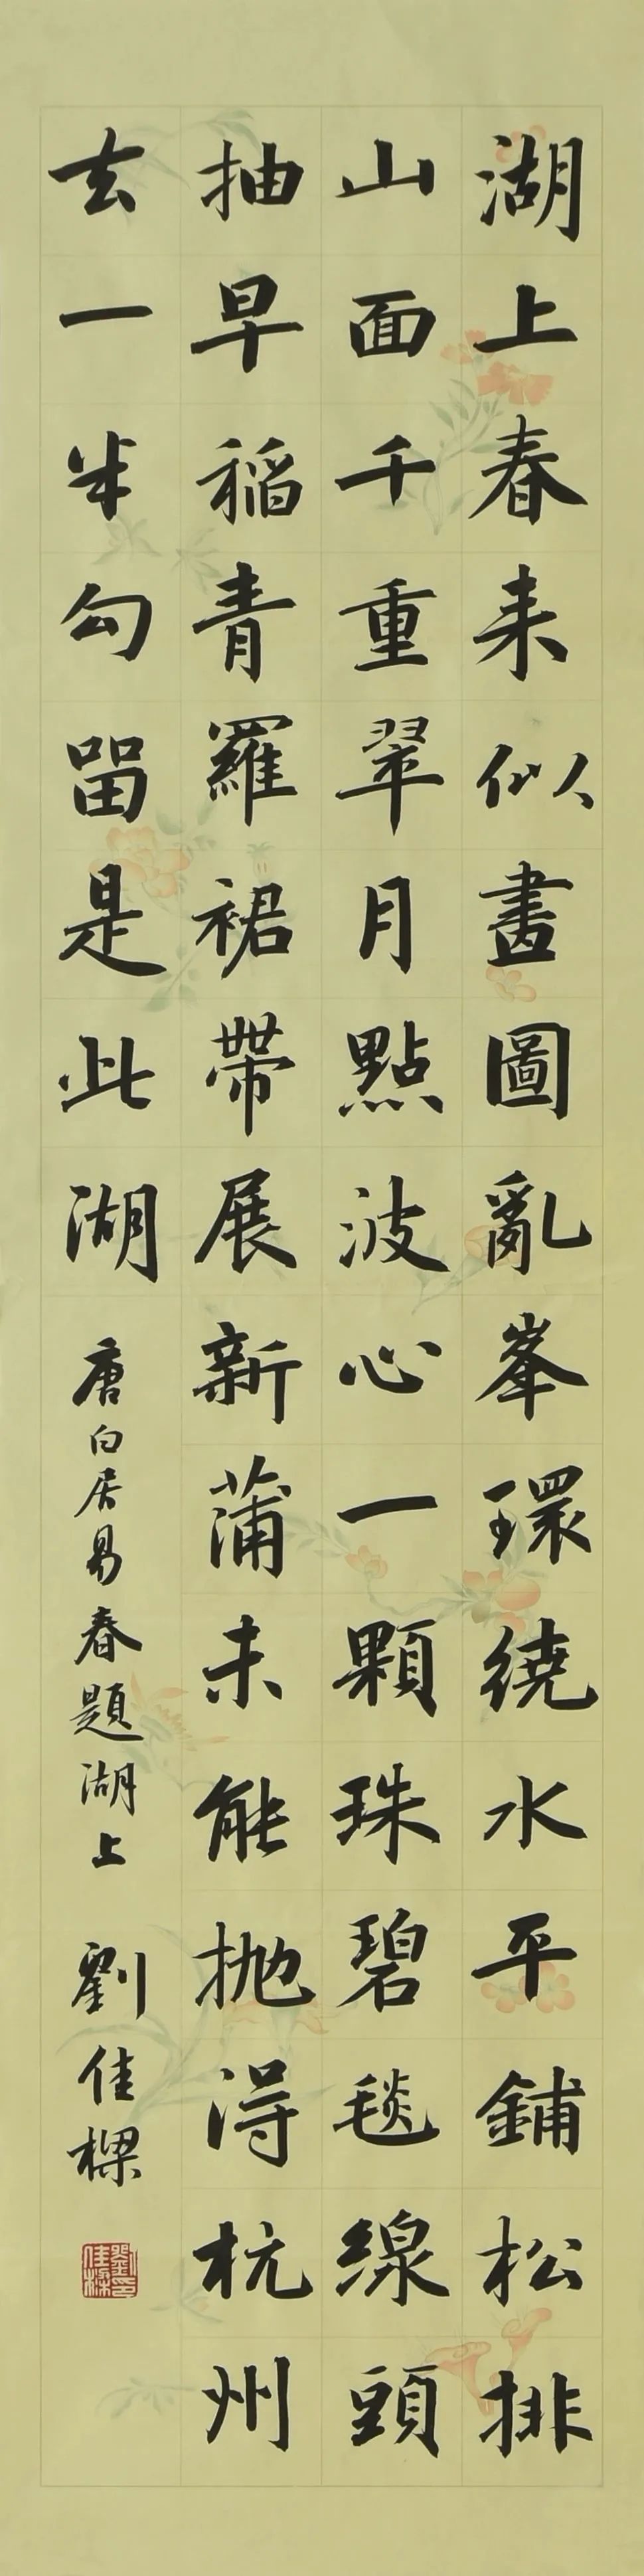 湖上春来似畫圖亂峯環繞水平鋪松排
山面千重翠月點波心一顆珠碧毯線頭
抽早稻青羅裙帶展新蒲未能抛得杭州
去一半勾留是此湖
唐白居易春題湖上 劉佳樑
劉佳樑印